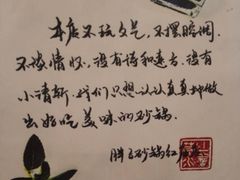 本店不玩文艺,不摆腔调
不谈情怀,没有诗和远方,没有
小清新,我们只想认认真真地做
出好吃美味的砂锅
胖子砂锅红